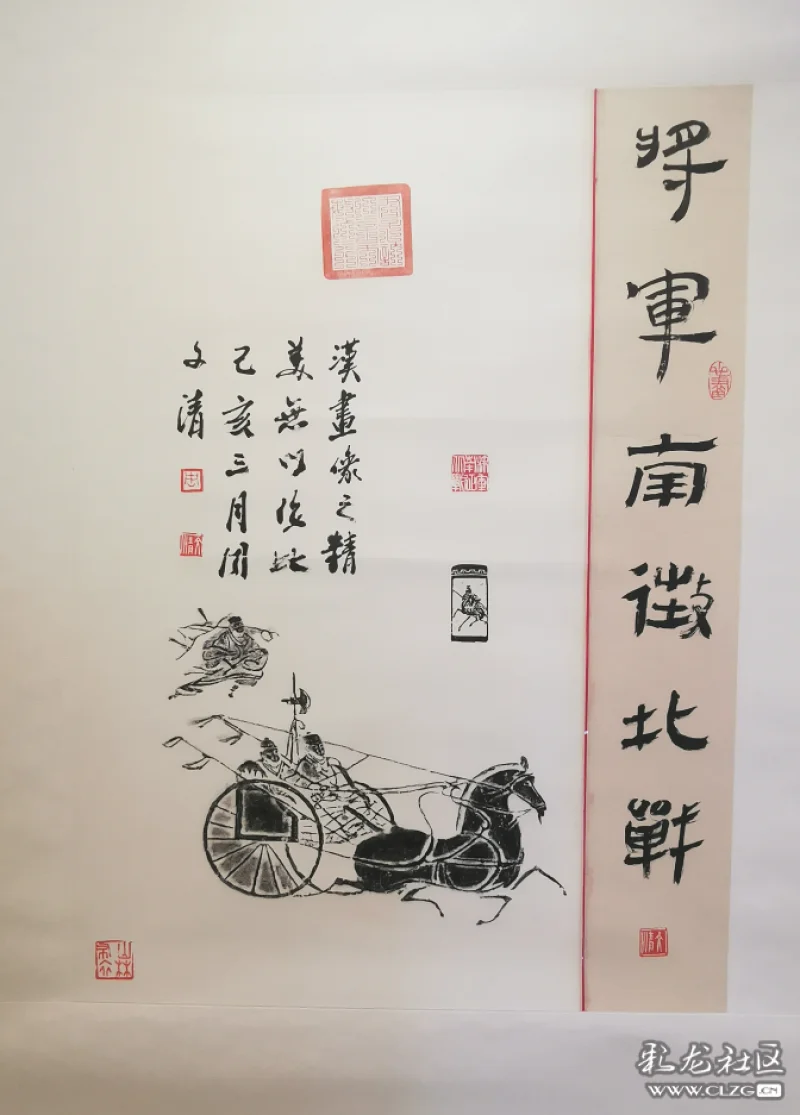 将軍南徵北戰
漢畫像之精
美無以倫比
己亥三月周
文清
彩龙社区
WWW.CLZG.CN